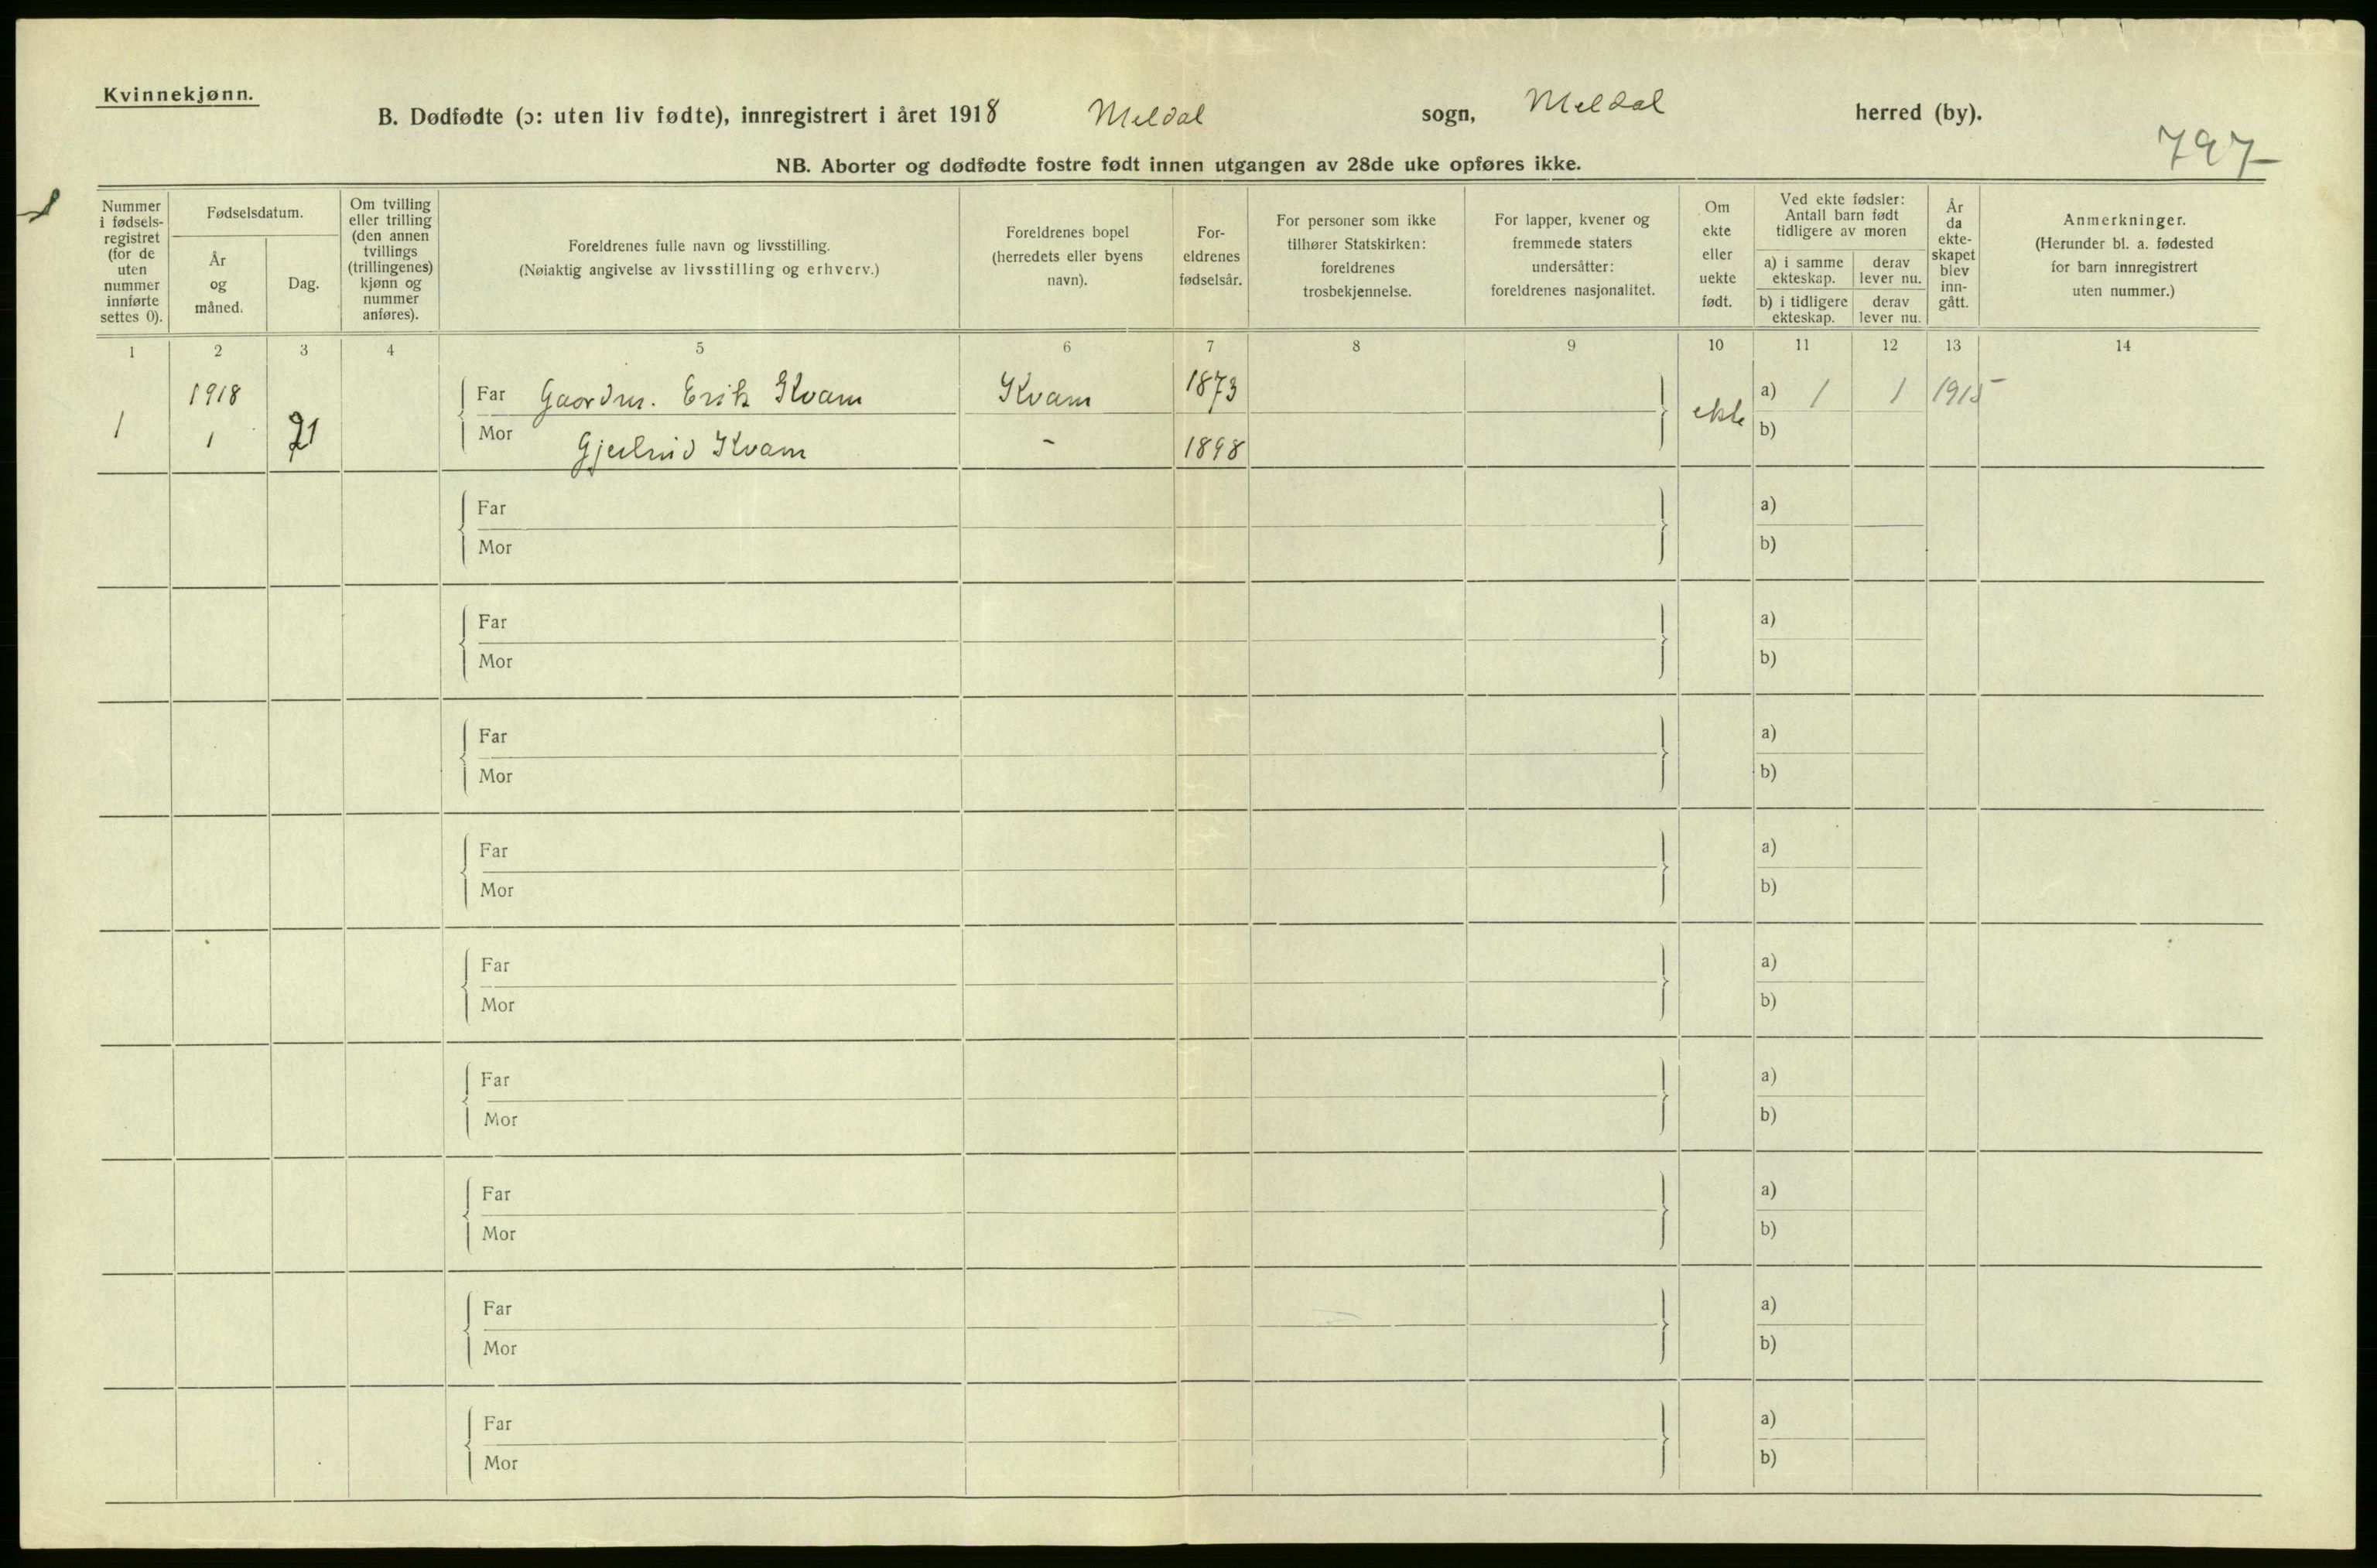 Kvinnekjønn.
B. Dødfødte (ɔ: uten liv fødte), innregistrert i året 1918 Meldal sogn, Meldal herred (by).
797
NB. Aborter og dødfødte fostre født innen utgangen av 28de uke opføres ikke.
Nummer i fødsels-registret (for de uten nummer innførte settes 0).
Fødselsdatum.
År og måned.
Dag.
Om tvilling eller trilling (den annen tvillings (trillingenes) kjønn og nummer anføres).
Foreldrenes fulle navn og livsstilling.
(Nøiaktig angivelse av livsstilling og erhverv.)
Foreldrenes bopel (herredets eller byens navn).
For-eldrenes fødselsår.
For personer som ikke tilhører Statskirken: foreldrenes trosbekjennelse.
For lapper, kvener og fremmede staters undersåtter: foreldrenes nasjonalitet.
Om ekte eller uekte født.
Ved ekte fødsler: Antall barn født tidligere av moren
a) i samme ekteskap.
derav lever nu.
b) i tidligere ekteskap.
derav lever nu.
År da ekte-skapet blev inn-gått.
Anmerkninger.
(Herunder bl. a. fødested for barn innregistrert uten nummer.)
1 2 3 4 5 6 7 8 9 10 11 12 13 14
1918 Far Gaardm. Erik Kvam Kvam 1873 ekte a) 1 1 1915
1 1 21 Mor Kvam - 1898 b)
Far a)
Mor b)
Far a)
Mor b)
Far a)
Mor b)
Far a)
Mor b)
Far a)
Mor b)
Far a)
Mor b)
Far a)
Mor b)
Far a)
Mor b)
Far a)
Mor b)